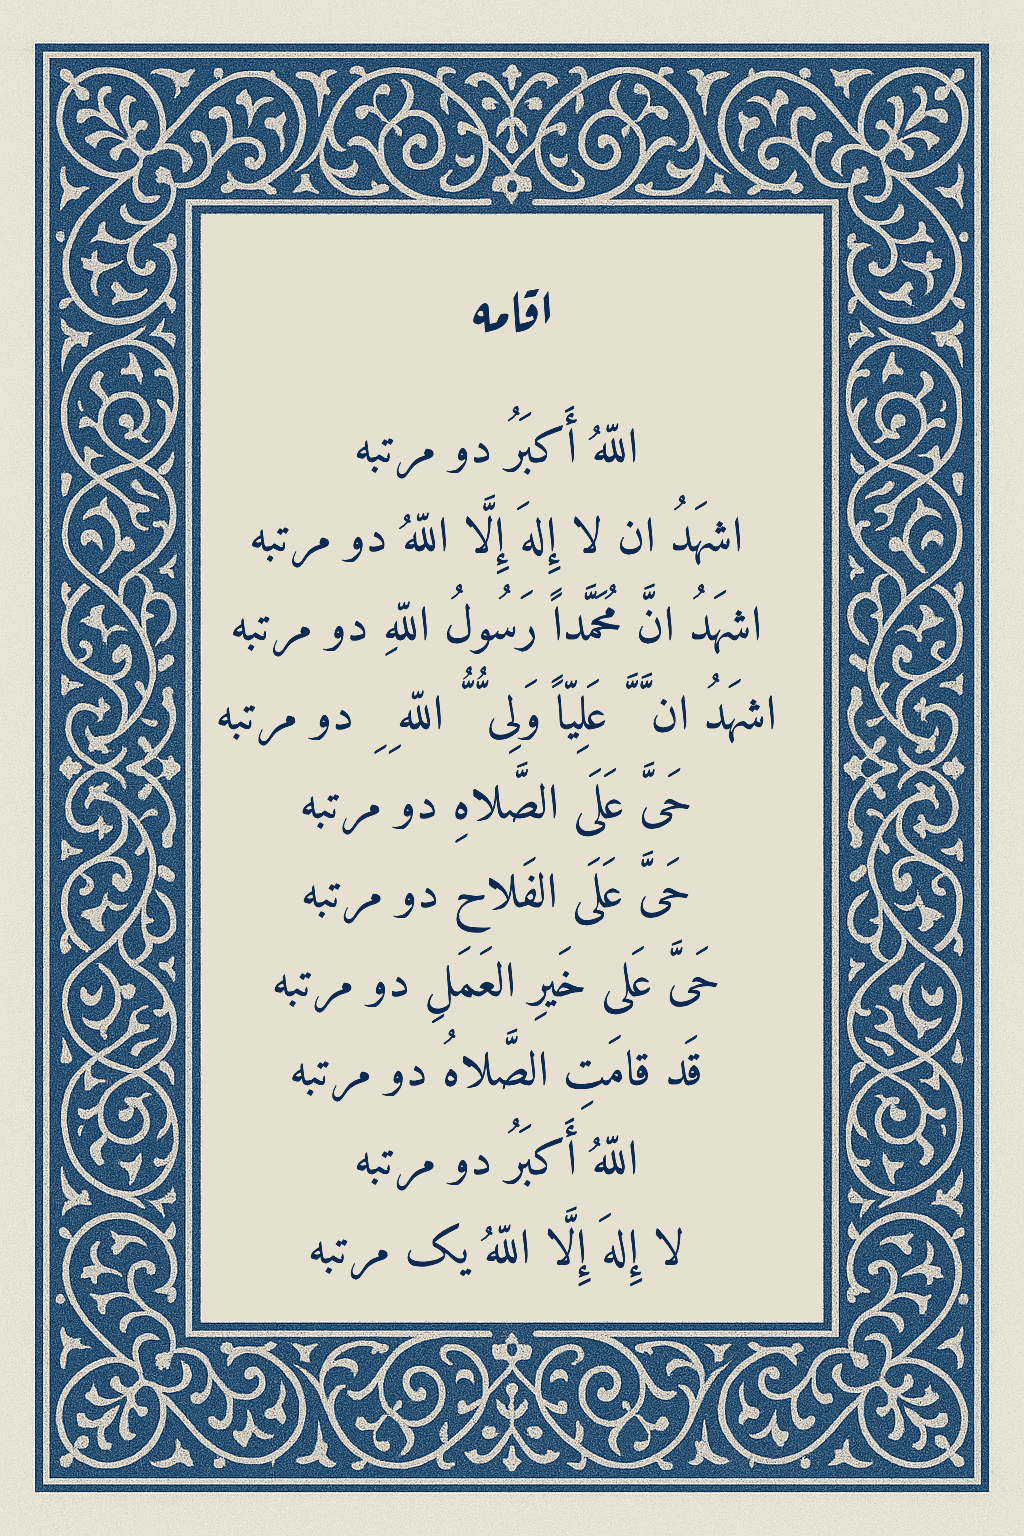 اقامه
اللّهُ أَكبَرُ دو مرتبه
اشهَدُ ان لا إِلهَ إِلَّا اللّهُ دو مرتبه
اشهَدُ انَّ مُحَمَّداً رَسولُ اللّهِ دو مرتبه
اشهَدُ انَّ عَلِیّاً وَلِی ُّ اللّه ِ دو مرتبه
حَیَّ عَلَی الصَّلاهِ دو مرتبه
حَیَّ عَلَی الفَلاح دو مرتبه
حَیَّ عَلی خَیرِ العَمَلِ دو مرتبه
قَد قامَتِ الصَّلاهُ دو مرتبه
اللّهُ أَكبَرُ دو مرتبه
لا إِلهَ إِلَّا اللّهُ یک مرتبه